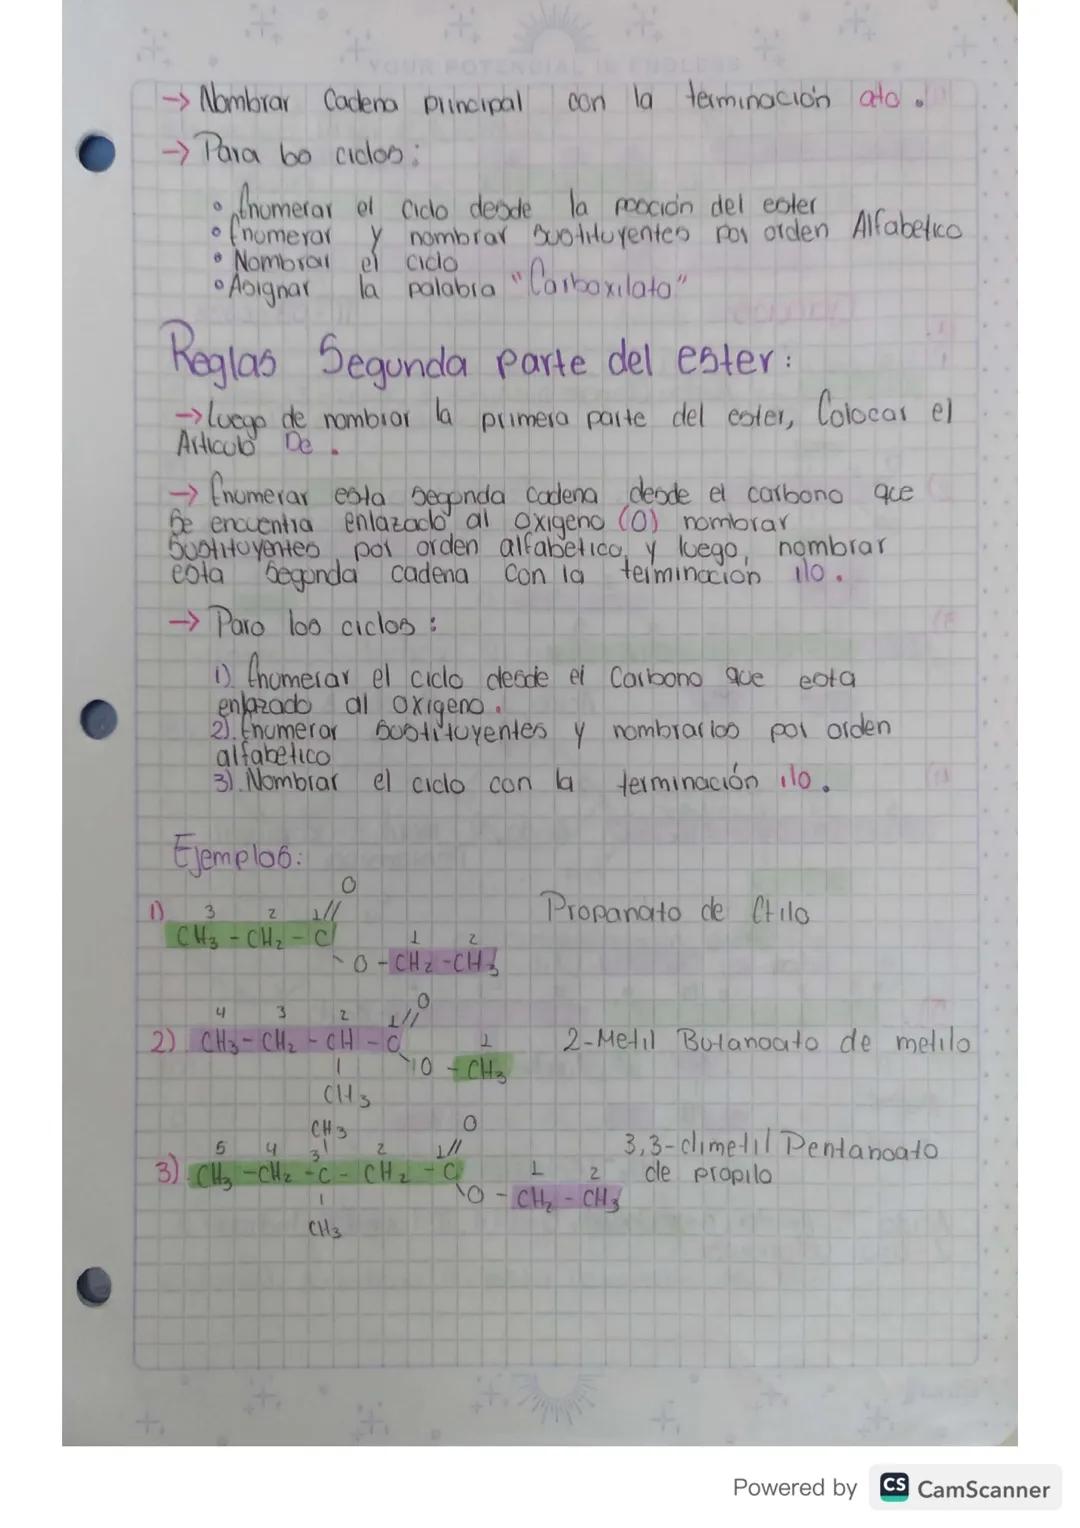 YOUR POTENCIAL IS ENDLESS
→ Nombrar Cadena principal con la terminación ato.
→ Para los ciclos:
• Enumerar el ciclo desde la posición del ester
• Enumerar y nombrar Sustituyentes por orden Alfabetico
• Nombrar el ciclo
• Asignar la palabra "Carboxilato"
Reglas Segunda parte del ester:
→ Luego de nombrar la primera parte del ester, Colocar el
Articulo De.
→ Enumerar esta segunda cadena desde el carbono que
se encuentra enlazado al oxigeno (O) nombrar
Sustituyentes por orden alfabetico, y luego, nombrar
esta segunda cadena con la terminación ilo.
→ Para los ciclos:
1). Enumerar el ciclo desde el Carbono que esta
enlazado al oxigeno.
2). Enumerar sustituyentes y nombrarlos por orden
alfabetico
3). Nombrar el ciclo con la terminación ilo.
Ejemplos:
O
1) 3 2 1//
CH3 - CH2 - C 1 2
O - CH2 - CH3
Propanato de Etilo
O
4 3 2 1//
2) CH3 - CH2 - CH - C 1
| O - CH3
CH3
2-Metil Butanoato de metilo
CH3 O
5 4 3| 2 1//
3) CH3 - CH2 - C - CH2 - C 1 2
| O - CH2 - CH3
CH3
3,3-dimetil Pentanoato
de propilo
Powered by CS CamScanner